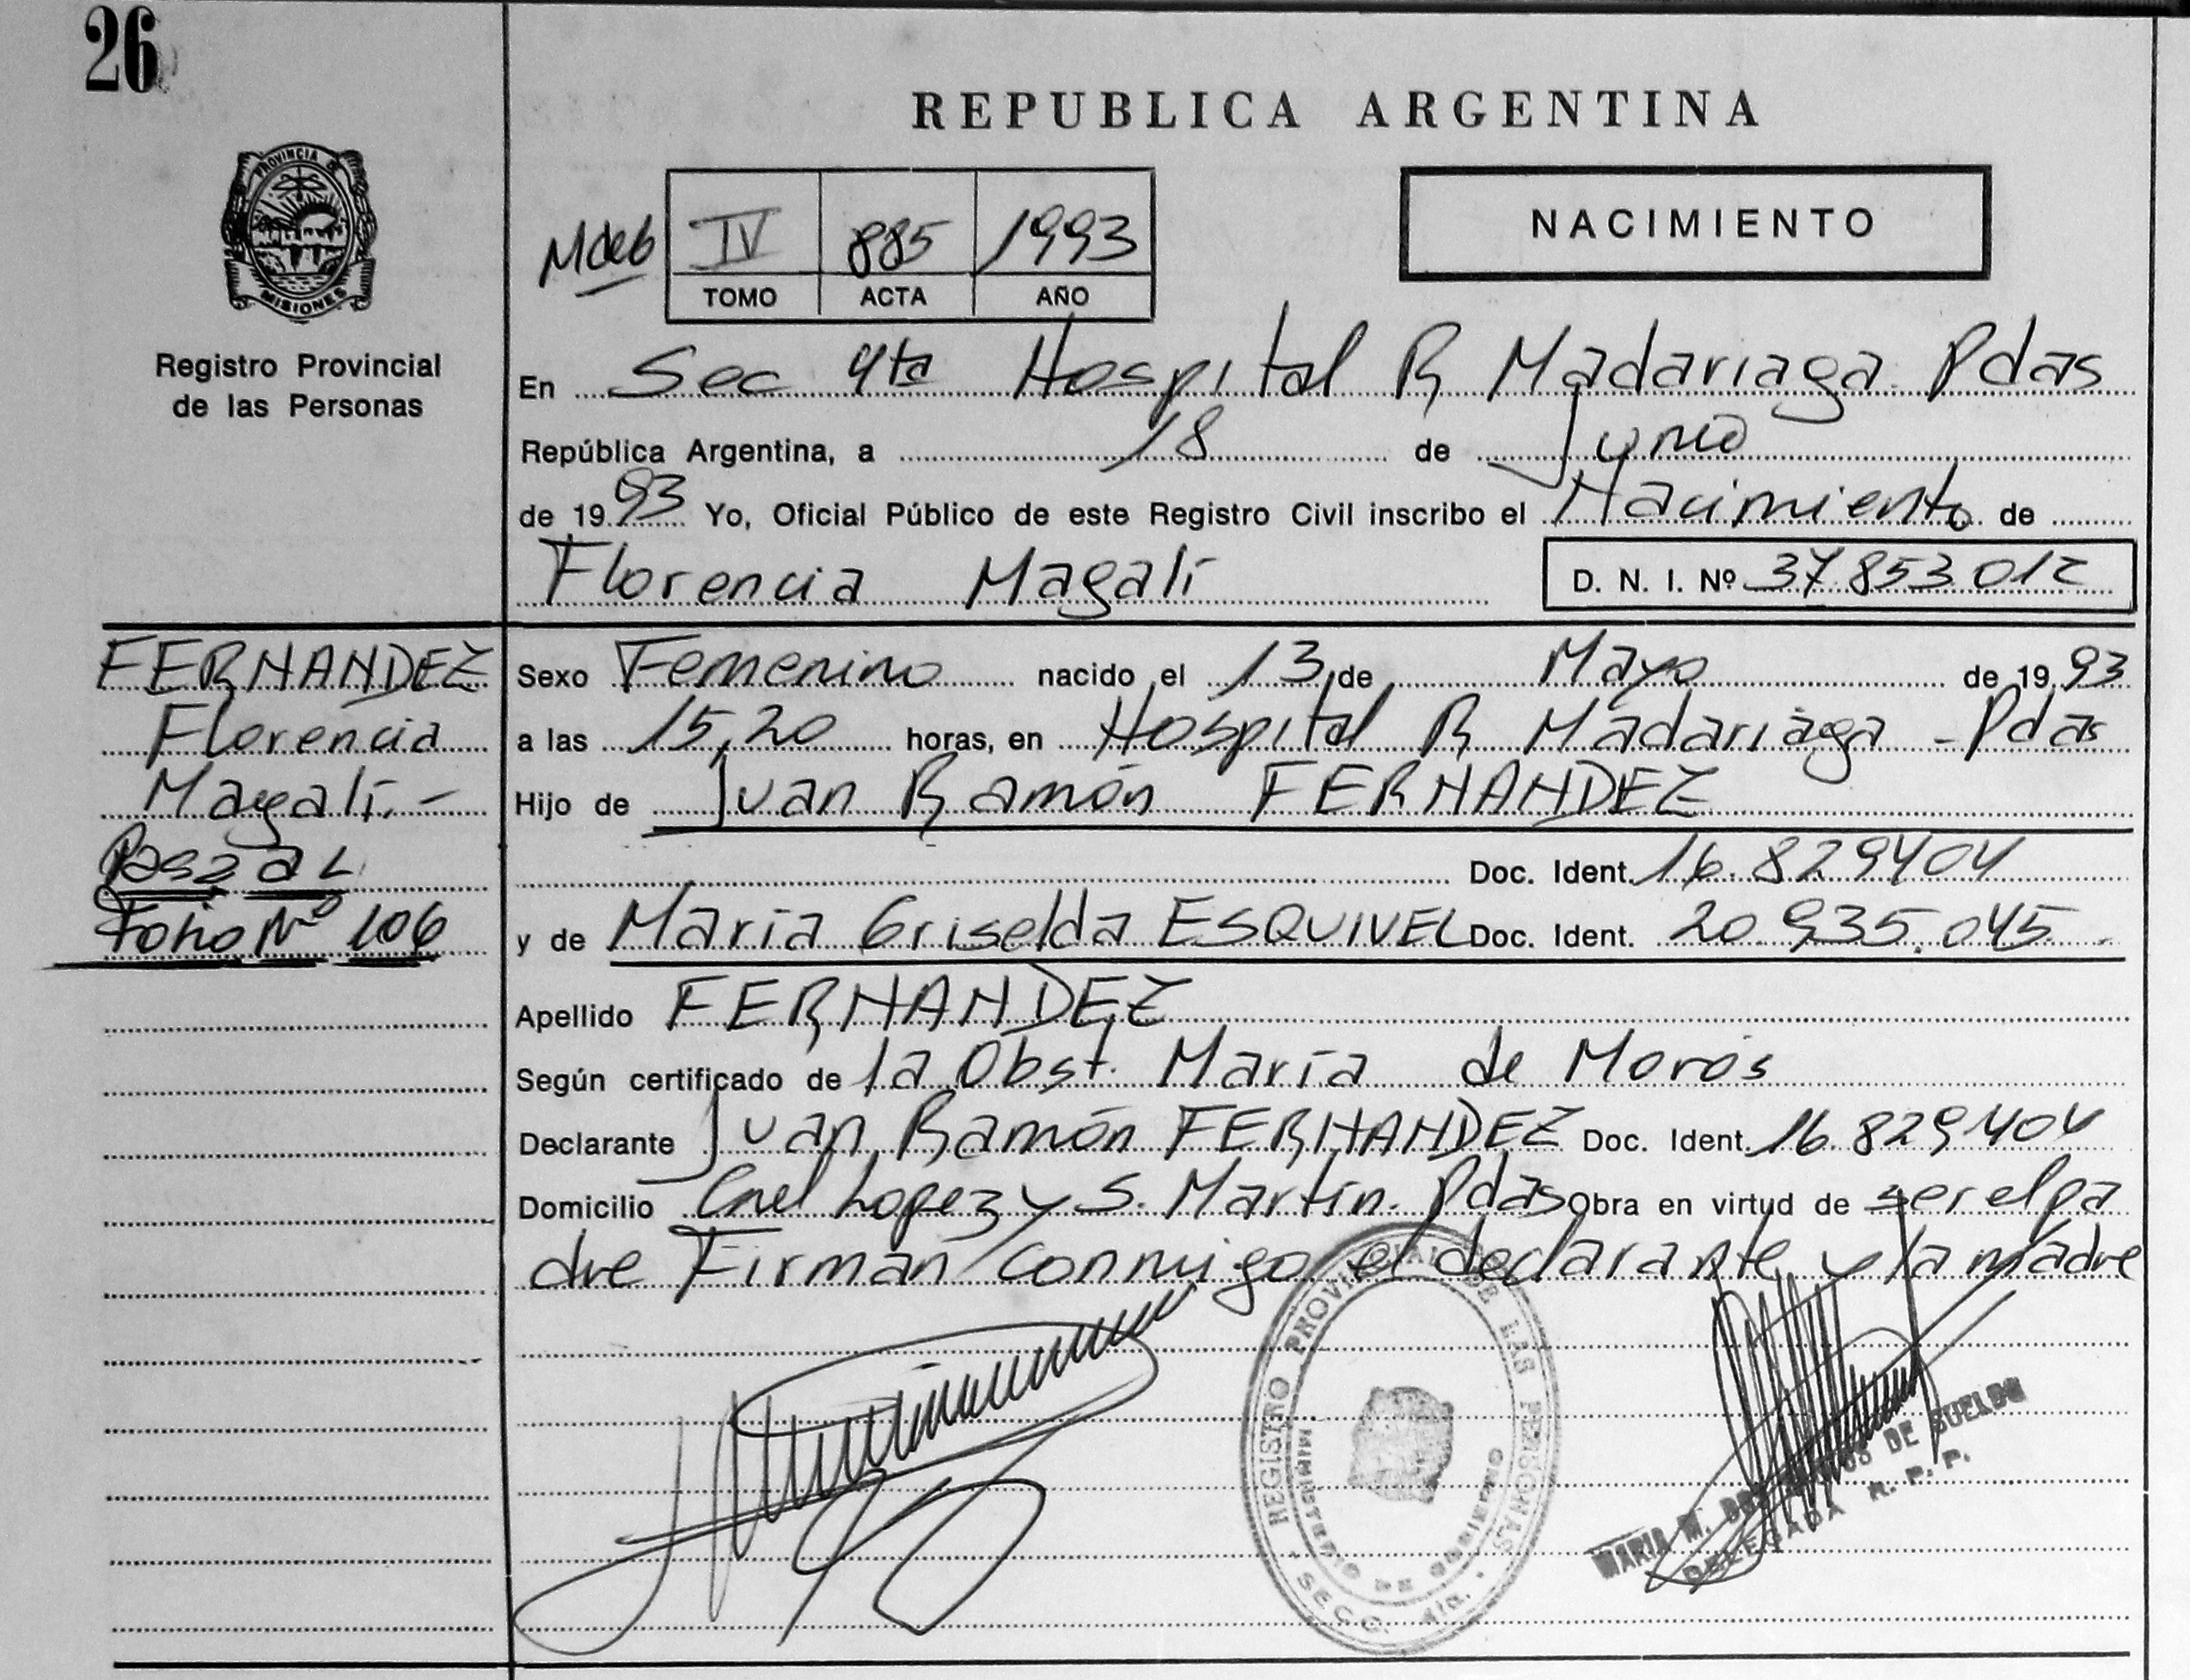 26
REPUBLICA ARGENTINA
PROVINCIA DE
MISIONES
Registro Provincial
de las Personas
IV 885 1993
TOMO ACTA AÑO
NACIMIENTO
En Sec 4ta Hospital R Madariaga Pdas
República Argentina, a 18 de Junio
de 1993 Yo, Oficial Público de este Registro Civil inscribo el Nacimiento de
Florencia Magalí D. N. I. Nº 37.853.012
FERNANDEZ
Florencia
Magalí.-
Pasa al
Folio Nº 106
Sexo Femenino nacido el 13 de Mayo de 1993
a las 15,20 horas, en Hospital R Madariaga - Pdas
Hijo de Juan Ramón FERNANDEZ
Doc. Ident. 16.829404
y de María Griselda ESQUIVEL Doc. Ident. 20.935.045
Apellido FERNANDEZ
Según certificado de la Obst. María de Morós
Declarante Juan Ramón FERNANDEZ Doc. Ident. 16.829404
Domicilio Cnel Lopez y S. Martín. Pdas Obra en virtud de ser el pa
dre Firman conmigo el declarante y la madre
REGISTRO PROVINCIAL DE LAS PERSONAS
MINISTERIO DE GOBIERNO
SECC. 4ta.
MARIA M. DOS SANTOS DE SUELDO
DELEGADA R. P. P.